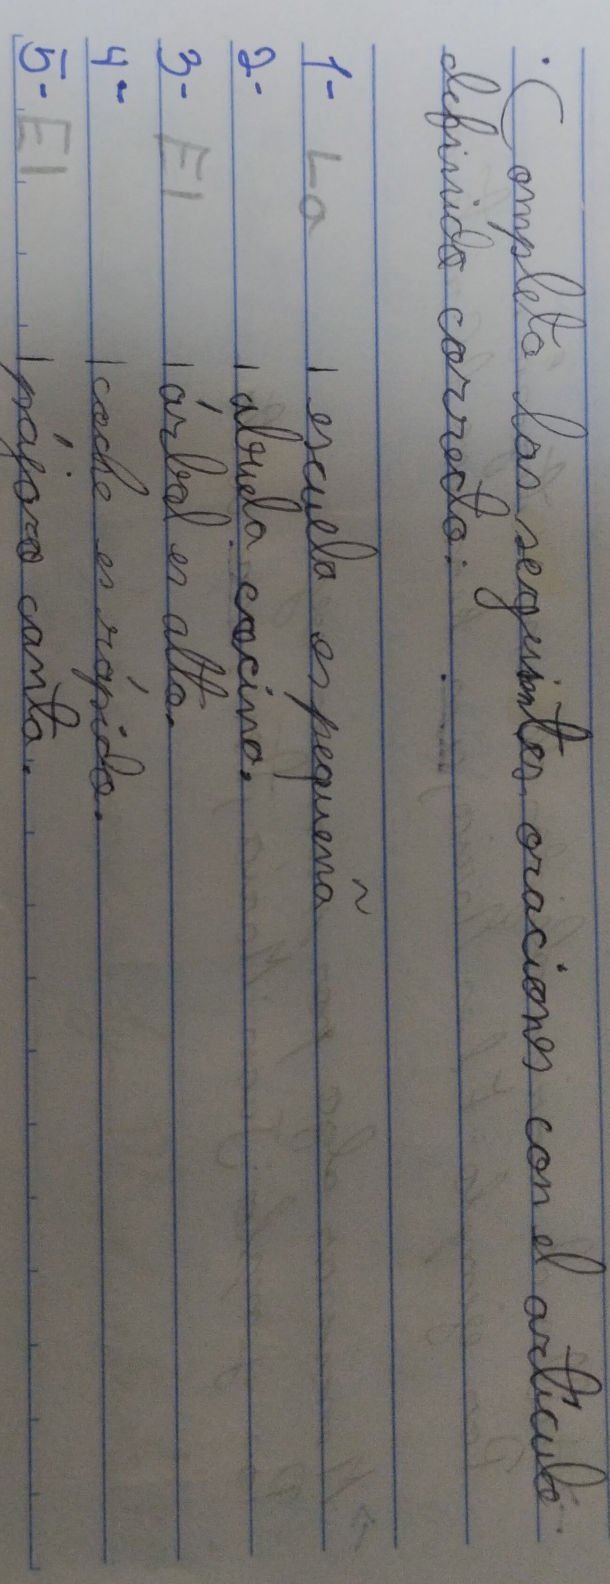 . Completa las seguintes oraciones con el artículo
definido correcto:
1- La escuela es pequeña
2- abuela cocina.
3- El árbol es alto.
4- coche es rápido.
5- El pájaro canta.